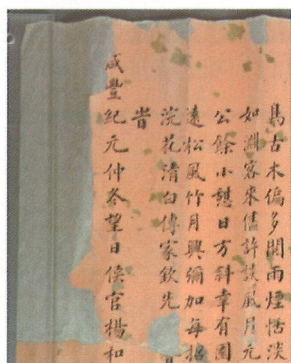 島古木偏多閒雨煙恬淡
如淵客來儘許談風月元
公餘小憩日方斜幸有園
遠松風竹月興彌加每招
浣花清白傳家欽先
昔
咸豐紀元仲冬望日侯官楊和